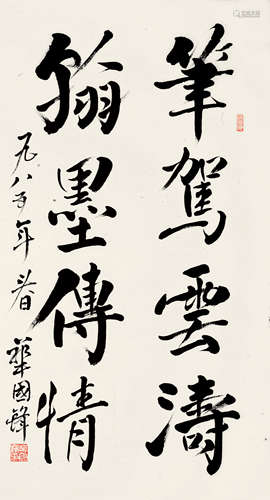 筆駕雲濤
翰墨傳情
一九八五年春
華國鋒